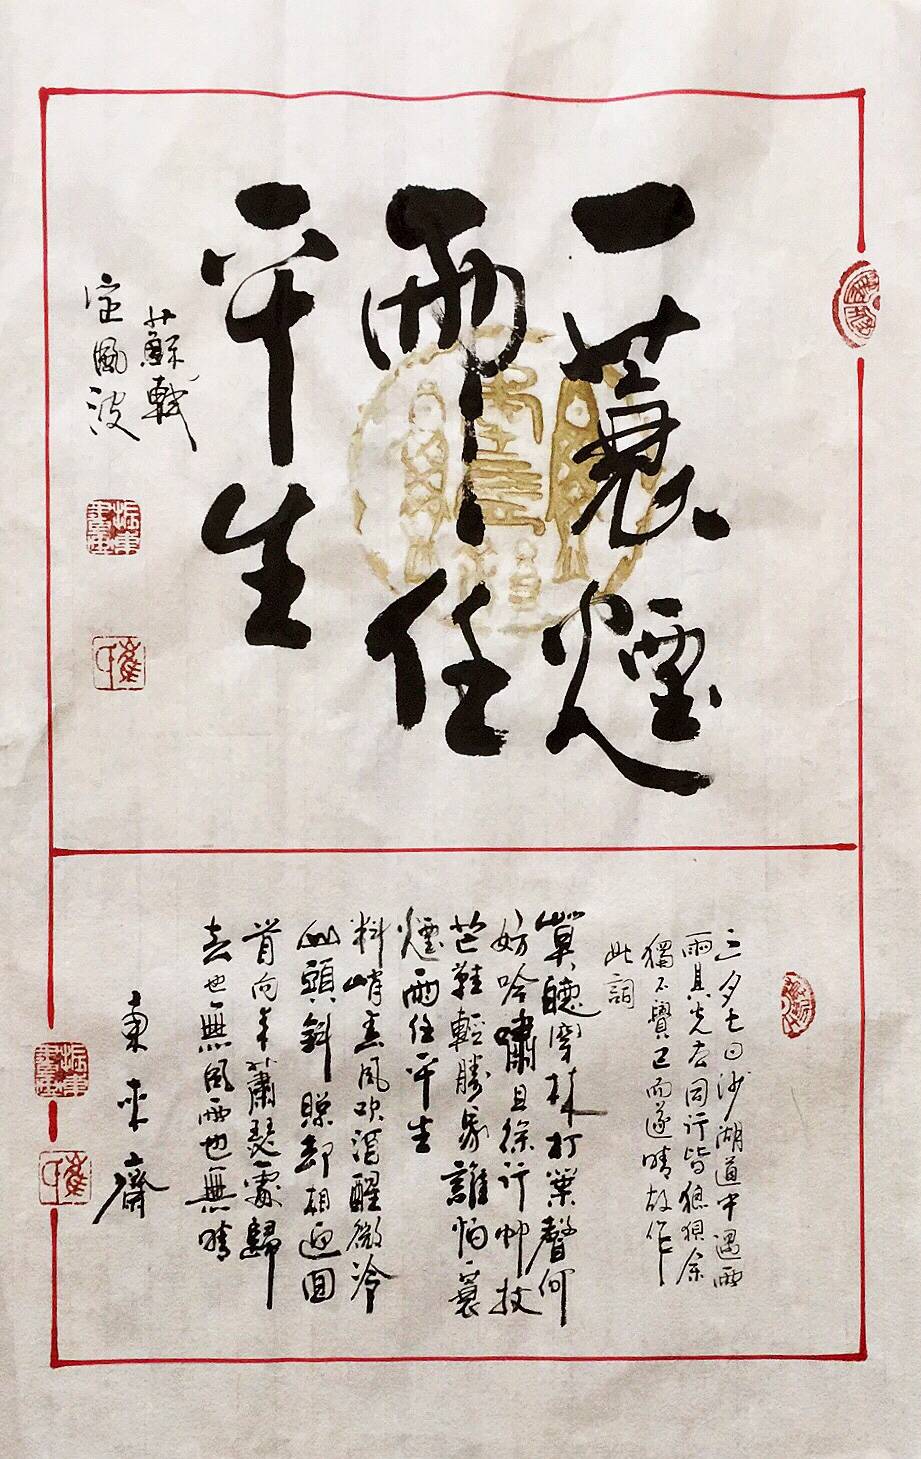 一蓑煙
雨任
平生
蘇軾
定風波
三月七日沙湖道中遇雨
雨具先去同行皆狼狽余
獨不覺已而遂晴故作
此詞
莫聽穿林打葉聲何
妨吟嘯且徐行竹杖
芒鞋輕勝馬誰怕一蓑
煙雨任平生
料峭春風吹酒醒微冷
山頭斜照却相迎回
首向來蕭瑟處歸
去也無風雨也無晴
東來齋